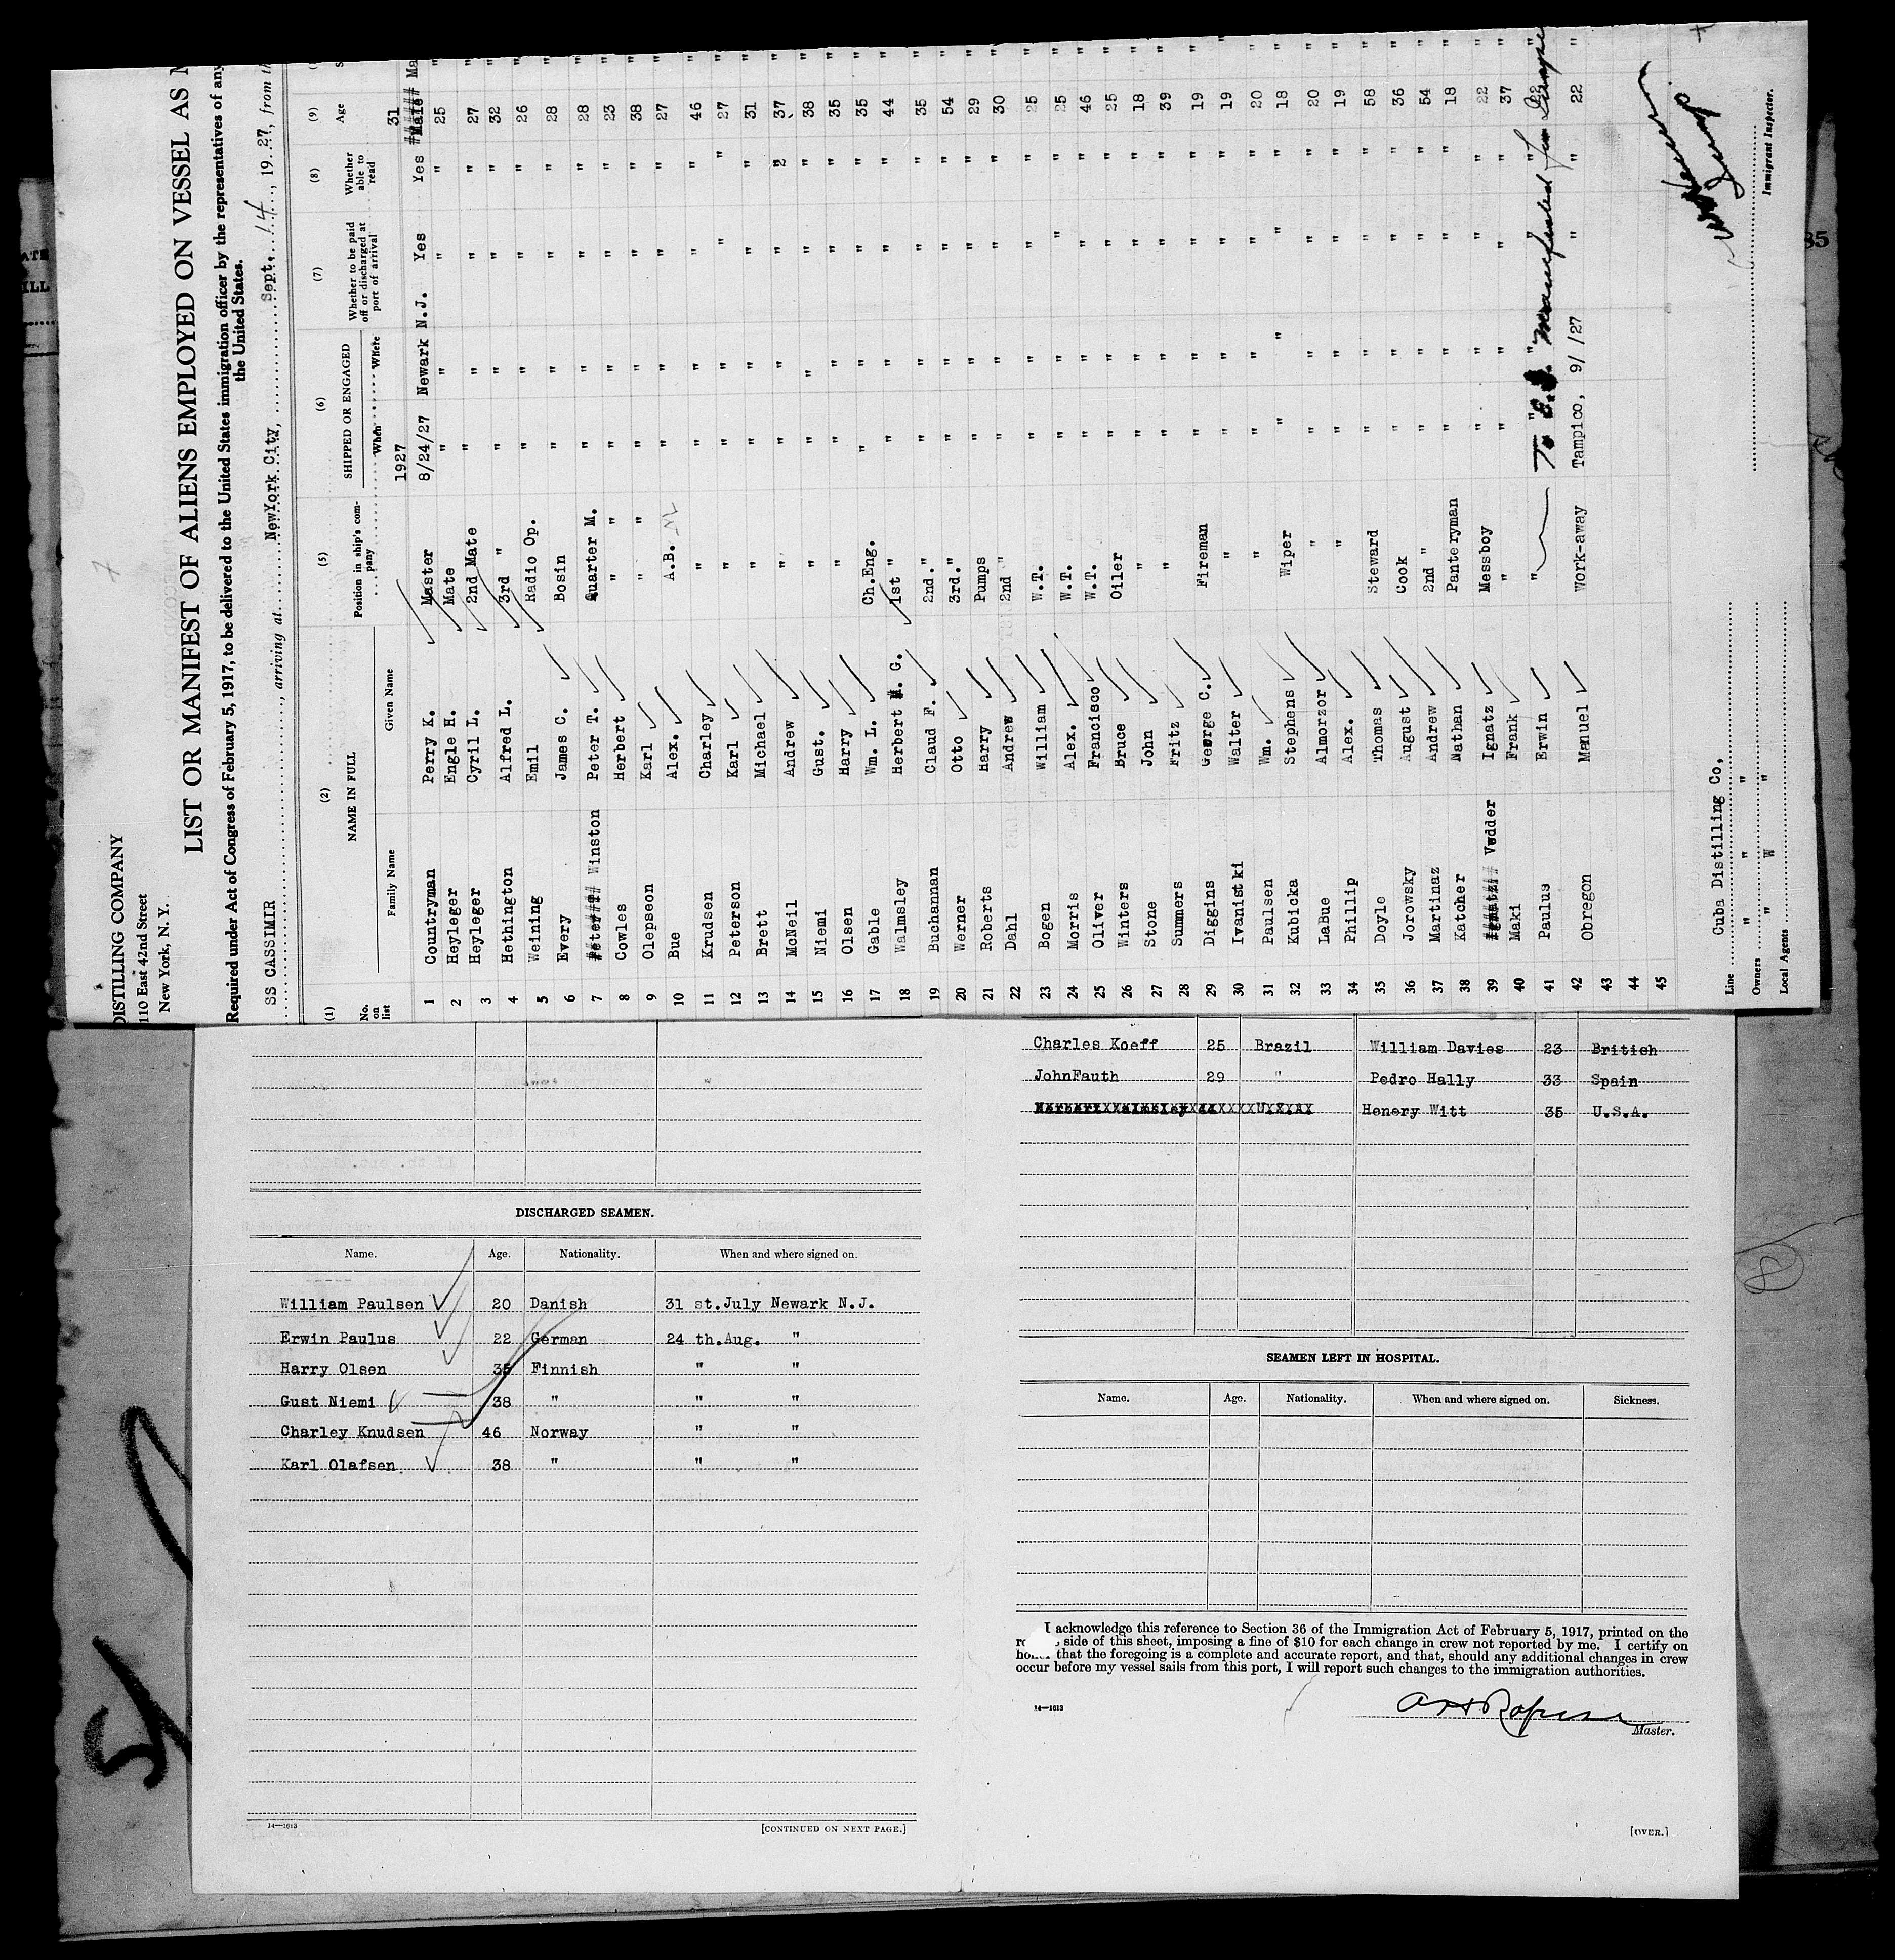 DISTILLING COMPANY
110 East 42nd Street
New York, N. Y.
LIST OR MANIFEST OF ALIENS EMPLOYED ON VESSEL AS
Required under Act of Congress of February 5, 1917, to be delivered to the United States immigration officer by the representatives of any
the United States.
SS CASSIMIR, arriving at NewYork City, Sept. 14, 1927, from
(1) (2) (5) (6) (7) (8) (9)
No. on list NAME IN FULL Position in ship's company SHIPPED OR ENGAGED Whether to be paid off or discharged at port of arrival Whether able to read Age
Family Name Given Name When Where
1927 31
1 Countryman Perry K. Master 8/24/27 Newark N.J. Yes Yes ##### Male Ma
2 Heyleger Engle H. Mate " " " " 25 "
3 Heyleger Cyril L. 2nd Mate " " " " 27 "
4 Hethington Alfred L. 3rd " " " " " 32 "
5 Weining Emil Radio Op. " " " " 26 "
6 Every James C. Bosin " " " " 28 "
7 Winston Peter T. Quarter M. " " " " 28 "
8 Cowles Herbert " " " " " " 23 "
9 Olepseon Karl " " " " " " 38 "
10 Bue Alex. A.B. " " " " 27 "
11 Krudsen Charley " " " " " 46 "
12 Peterson Karl " " " " " 27 "
13 Brett Michael " " " " " 31 "
14 McNeil Andrew " " " " 2 37 "
15 Niemi Gust. " " " " " 38 "
16 Olsen Harry " " " " " 35 "
17 Gable Wm. L. Ch.Eng. " " " " 35 "
18 Walmsley Herbert G. 1st " " " " " 44 "
19 Buchannan Claud F. 2nd." " " " " 35 "
20 Werner Otto 3rd." " " " " 54 "
21 Roberts Harry Pumps " " " " 29 "
22 Dahl Andrew 2nd " " " " " 30 "
23 Bogen William W.T. " " " " 25 "
24 Morris Alex. W.T. " " " " 25 "
25 Oliver Francisco W.T. " " " " 46 "
26 Winters Bruce Oiler " " " " 25 "
27 Stone John " " " " " 18 "
28 Summers Fritz " " " " " 39 "
29 Diggins George C. Fireman " " " " 19 "
30 Ivanistki Walter " " " " " 19 "
31 Paulsen Wm. " " " " " 20 "
32 Kubicka Stephens Wiper " " " " 18 "
33 LaBue Almorzor " " " " " 20 "
34 Phillip Alex. " " " " " 19 "
35 Doyle Thomas Steward " " " " 58 "
36 Jorowsky August Cook " " " " 36 "
37 Martinaz Andrew 2nd " " " " " 54 "
38 Katcher Nathan Panteryman " " " " 18 "
39 Vedder Ignatz Messboy " " " " 22 "
40 Maki Frank " " " " " 37 "
41 Paulus Erwin " " " " " 22 "
42 Obregon Manuel Work-away Tampico, 9/ /27 " " 22 "
43
44
45
Line Cuba Distilling Co,
Owners " " "
Local Agents " W "
Immigrant Inspector.
Charles Koeff 25 Brazil William Davies 23 British
JohnFauth 29 " Pedro Hally 33 Spain
Henery Witt 35 U.S.A.
DISCHARGED SEAMEN.
Name. Age. Nationality. When and where signed on.
William Paulsen 20 Danish 31 st.July Newark N.J.
Erwin Paulus 22 German 24 th.Aug. "
Harry Olsen 35 Finnish " "
Gust Niemi 38 " " "
Charley Knudsen 46 Norway " "
Karl Olafsen 38 " " "
14—1613
[CONTINUED ON NEXT PAGE.]
SEAMEN LEFT IN HOSPITAL.
Name. Age. Nationality. When and where signed on. Sickness.
I acknowledge this reference to Section 36 of the Immigration Act of February 5, 1917, printed on the
side of this sheet, imposing a fine of $10 for each change in crew not reported by me. I certify on
that the foregoing is a complete and accurate report, and that, should any additional changes in crew
occur before my vessel sails from this port, I will report such changes to the immigration authorities.
14—1613
Master.
[OVER.]